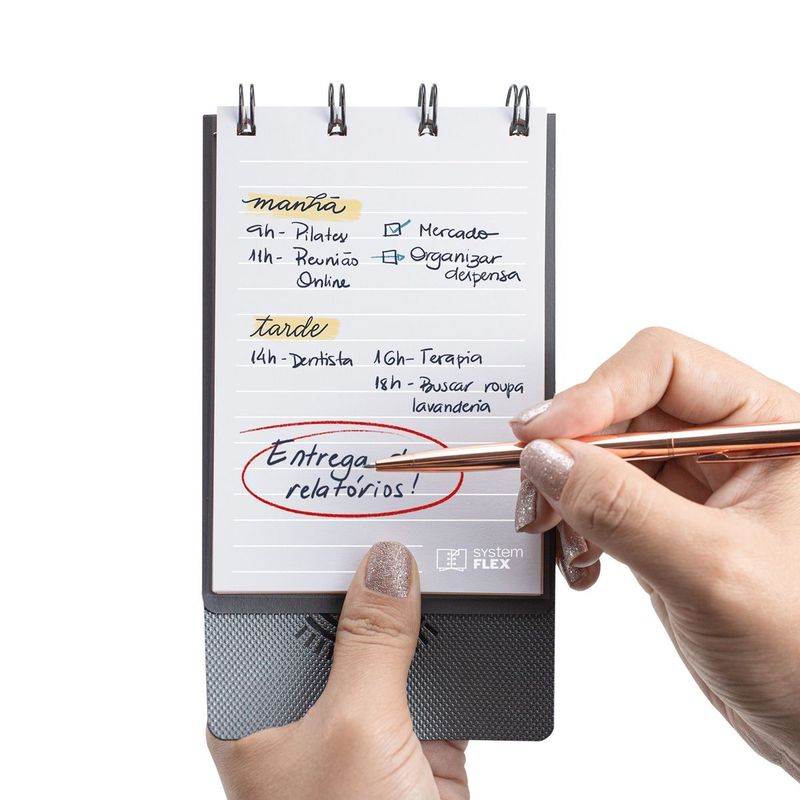 manhã
9h - Pilates
11h - Reunião
Online
Mercado
Organizar
despensa
tarde
14h - Dentista
16h - Terapia
18h - Buscar roupa
lavanderia
Entrega
relatórios!
system
FLEX